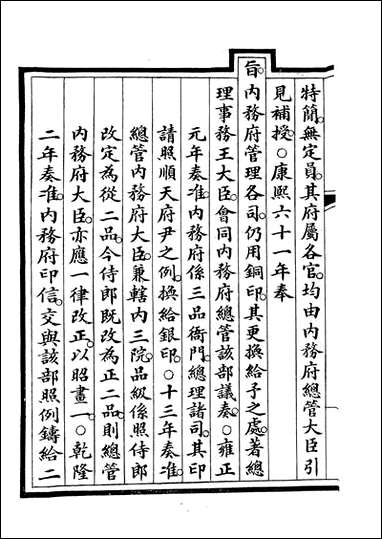 特簡。無定員。其府屬各官。均由內務府總管大臣引
見補授。○康熙六十一年奉
旨。內務府管理各司。仍用銅印。其更換給予之處。著總
理事務王大臣。會同內務府總管該部議奏。○雍正
元年奏准。內務府係三品衙門。總理諸司。其印
請照順天府尹之例。換給銀印。○十三年奏准。
總管內務府大臣。兼轄內三院。品級係照侍郎
改定為從二品。今侍郎既改為正二品。則總管
內務府大臣。亦應一律改正。以昭畫一。○乾隆
二年奏准。內務府印信。交與該部照例鑄給二